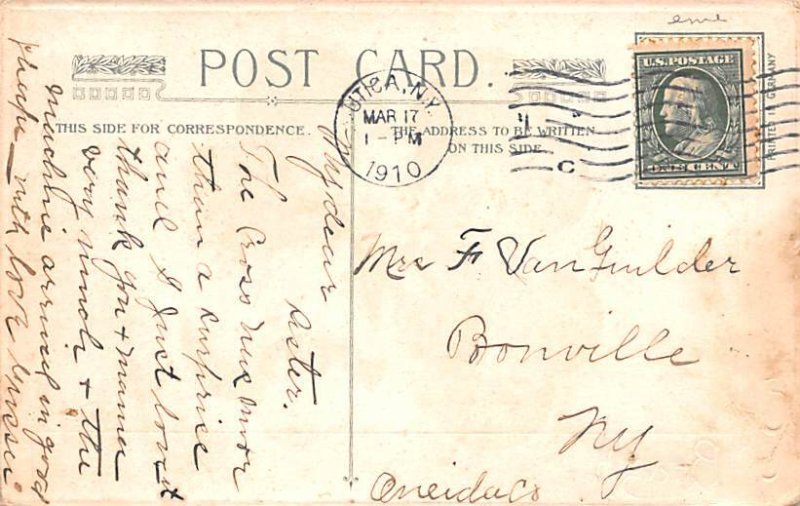 POST CARD.
THIS SIDE FOR CORRESPONDENCE.
THE ADDRESS TO BE WRITTEN
ON THIS SIDE
UTICA, N.Y.
MAR 17
1-PM
1910
C
U.S. POSTAGE
ONE CENT
PRINTED IN GERMANY
Mrs F VanGuilder
Bonville
NY
Oneida Co
My dear
sister.
The Cross was more
than a surprise
and I just love it
thank you &
very much & the
machine arrived in good
shape with love